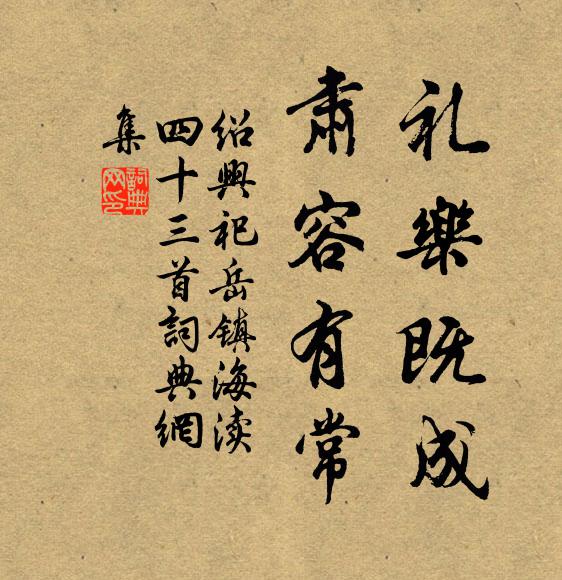 礼樂既成
肅容有常
绍興祀岳镇海渎
四十三首詞典網
集
詞典
网印